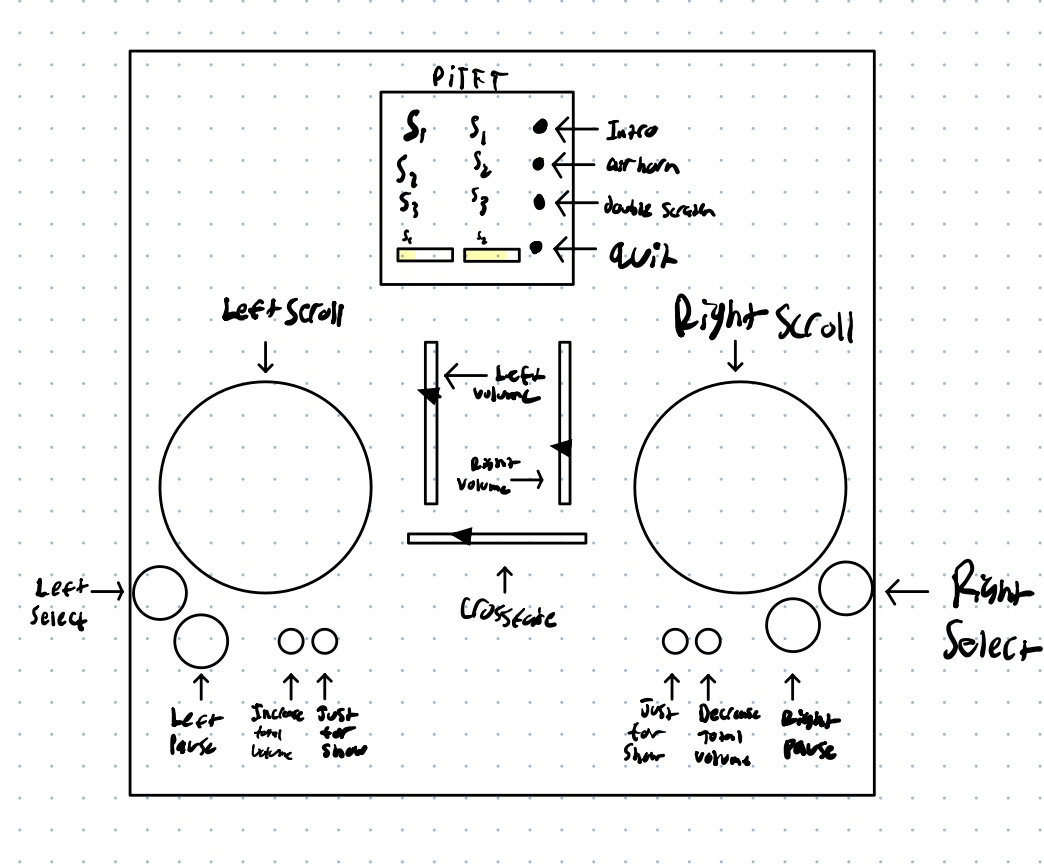 PiTFT
S1 S1 Intro
S2 S2 air horn
S3 S3 double scratch
S1 S2
Quit
Left Scroll
Right Scroll
Left
volume
Right
volume
Crossfade
Left
Select
Right
Select
Left
Pause
Increase
total
volume
Just
for
Show
Just
for
Show
Decrease
Total
volume
Right
Pause